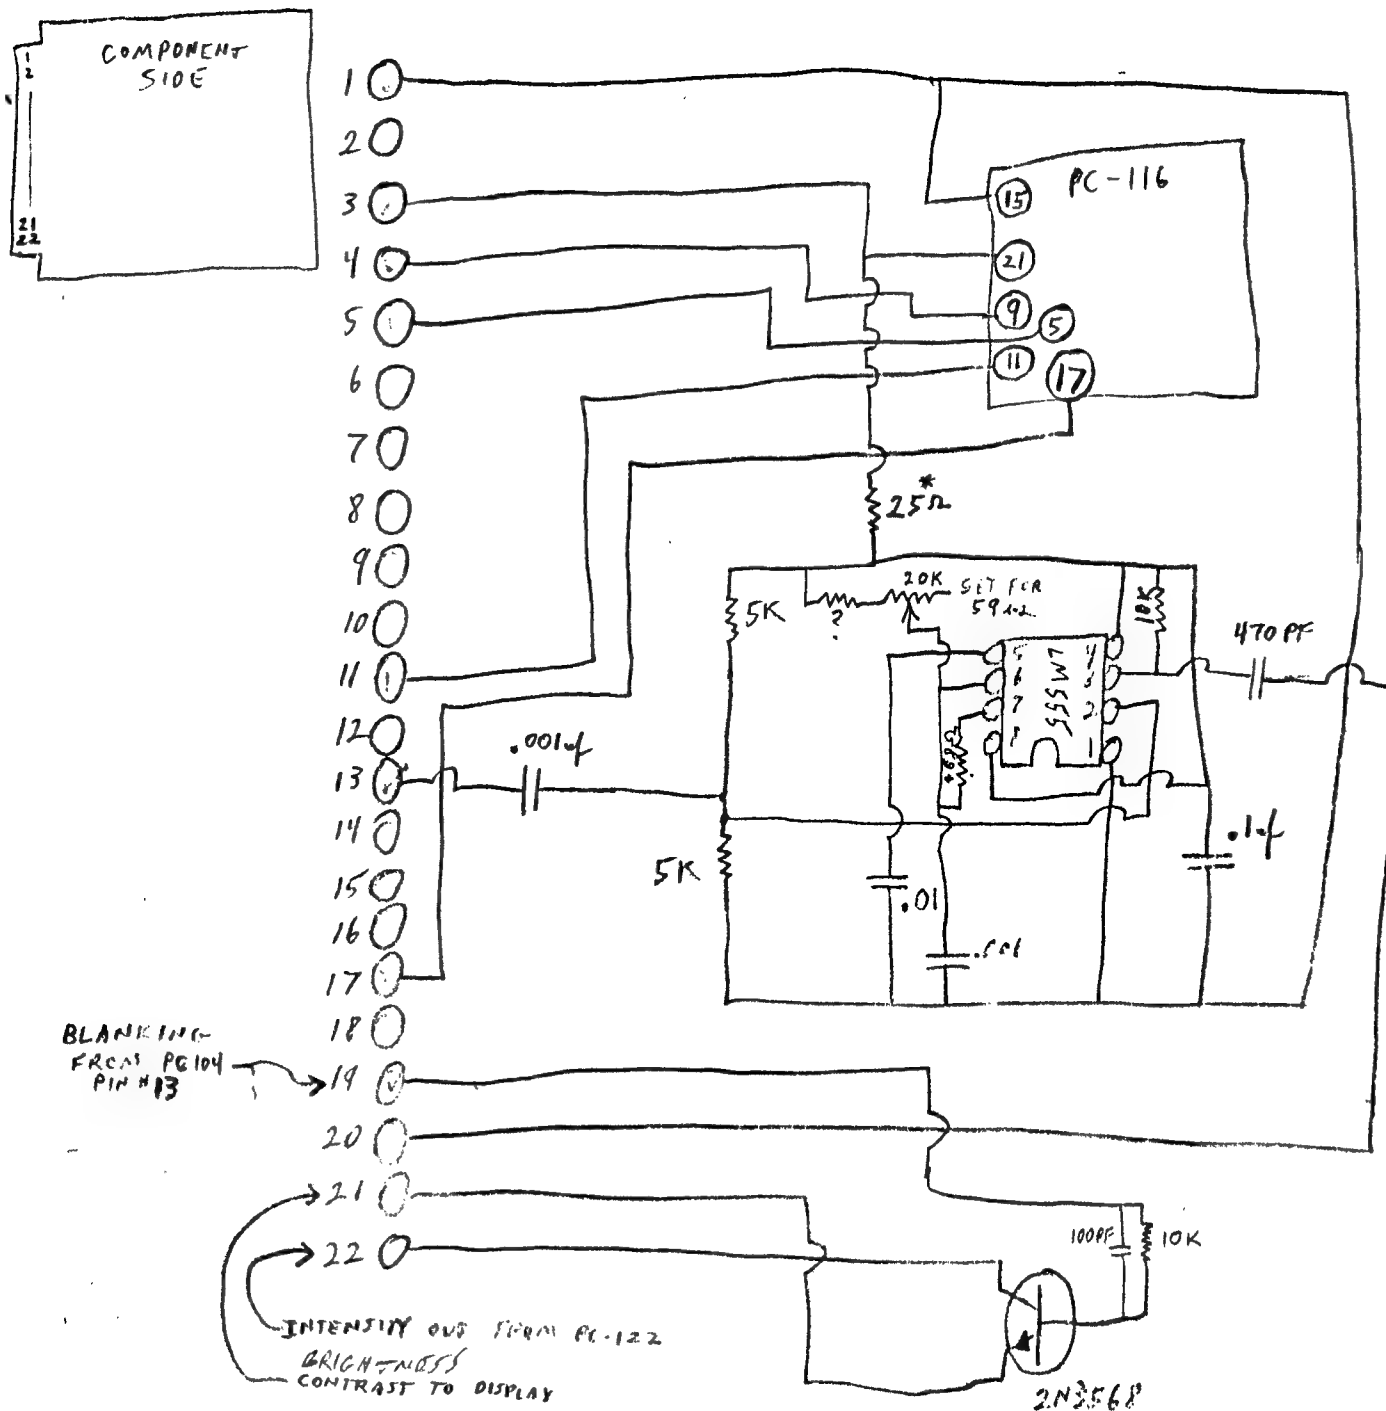 COMPONENT
SIDE
1
2
21
22
1
2
3
4
5
6
7
8
9
10
11
12
13
14
15
16
17
18
19
20
21
22
PC-116
15
21
9
5
11
17
*
25Ω
5K
?
20K
SET FOR
10K
470 PF
LM555
5
6
7
8
4
3
2
1
.001uf
5K
.01
.1uf
BLANKING
FROM PC104
PIN #13
100PF
10K
INTENSITY OUT FROM PC-122
BRIGHTNESS
CONTRAST TO DISPLAY
2N3568